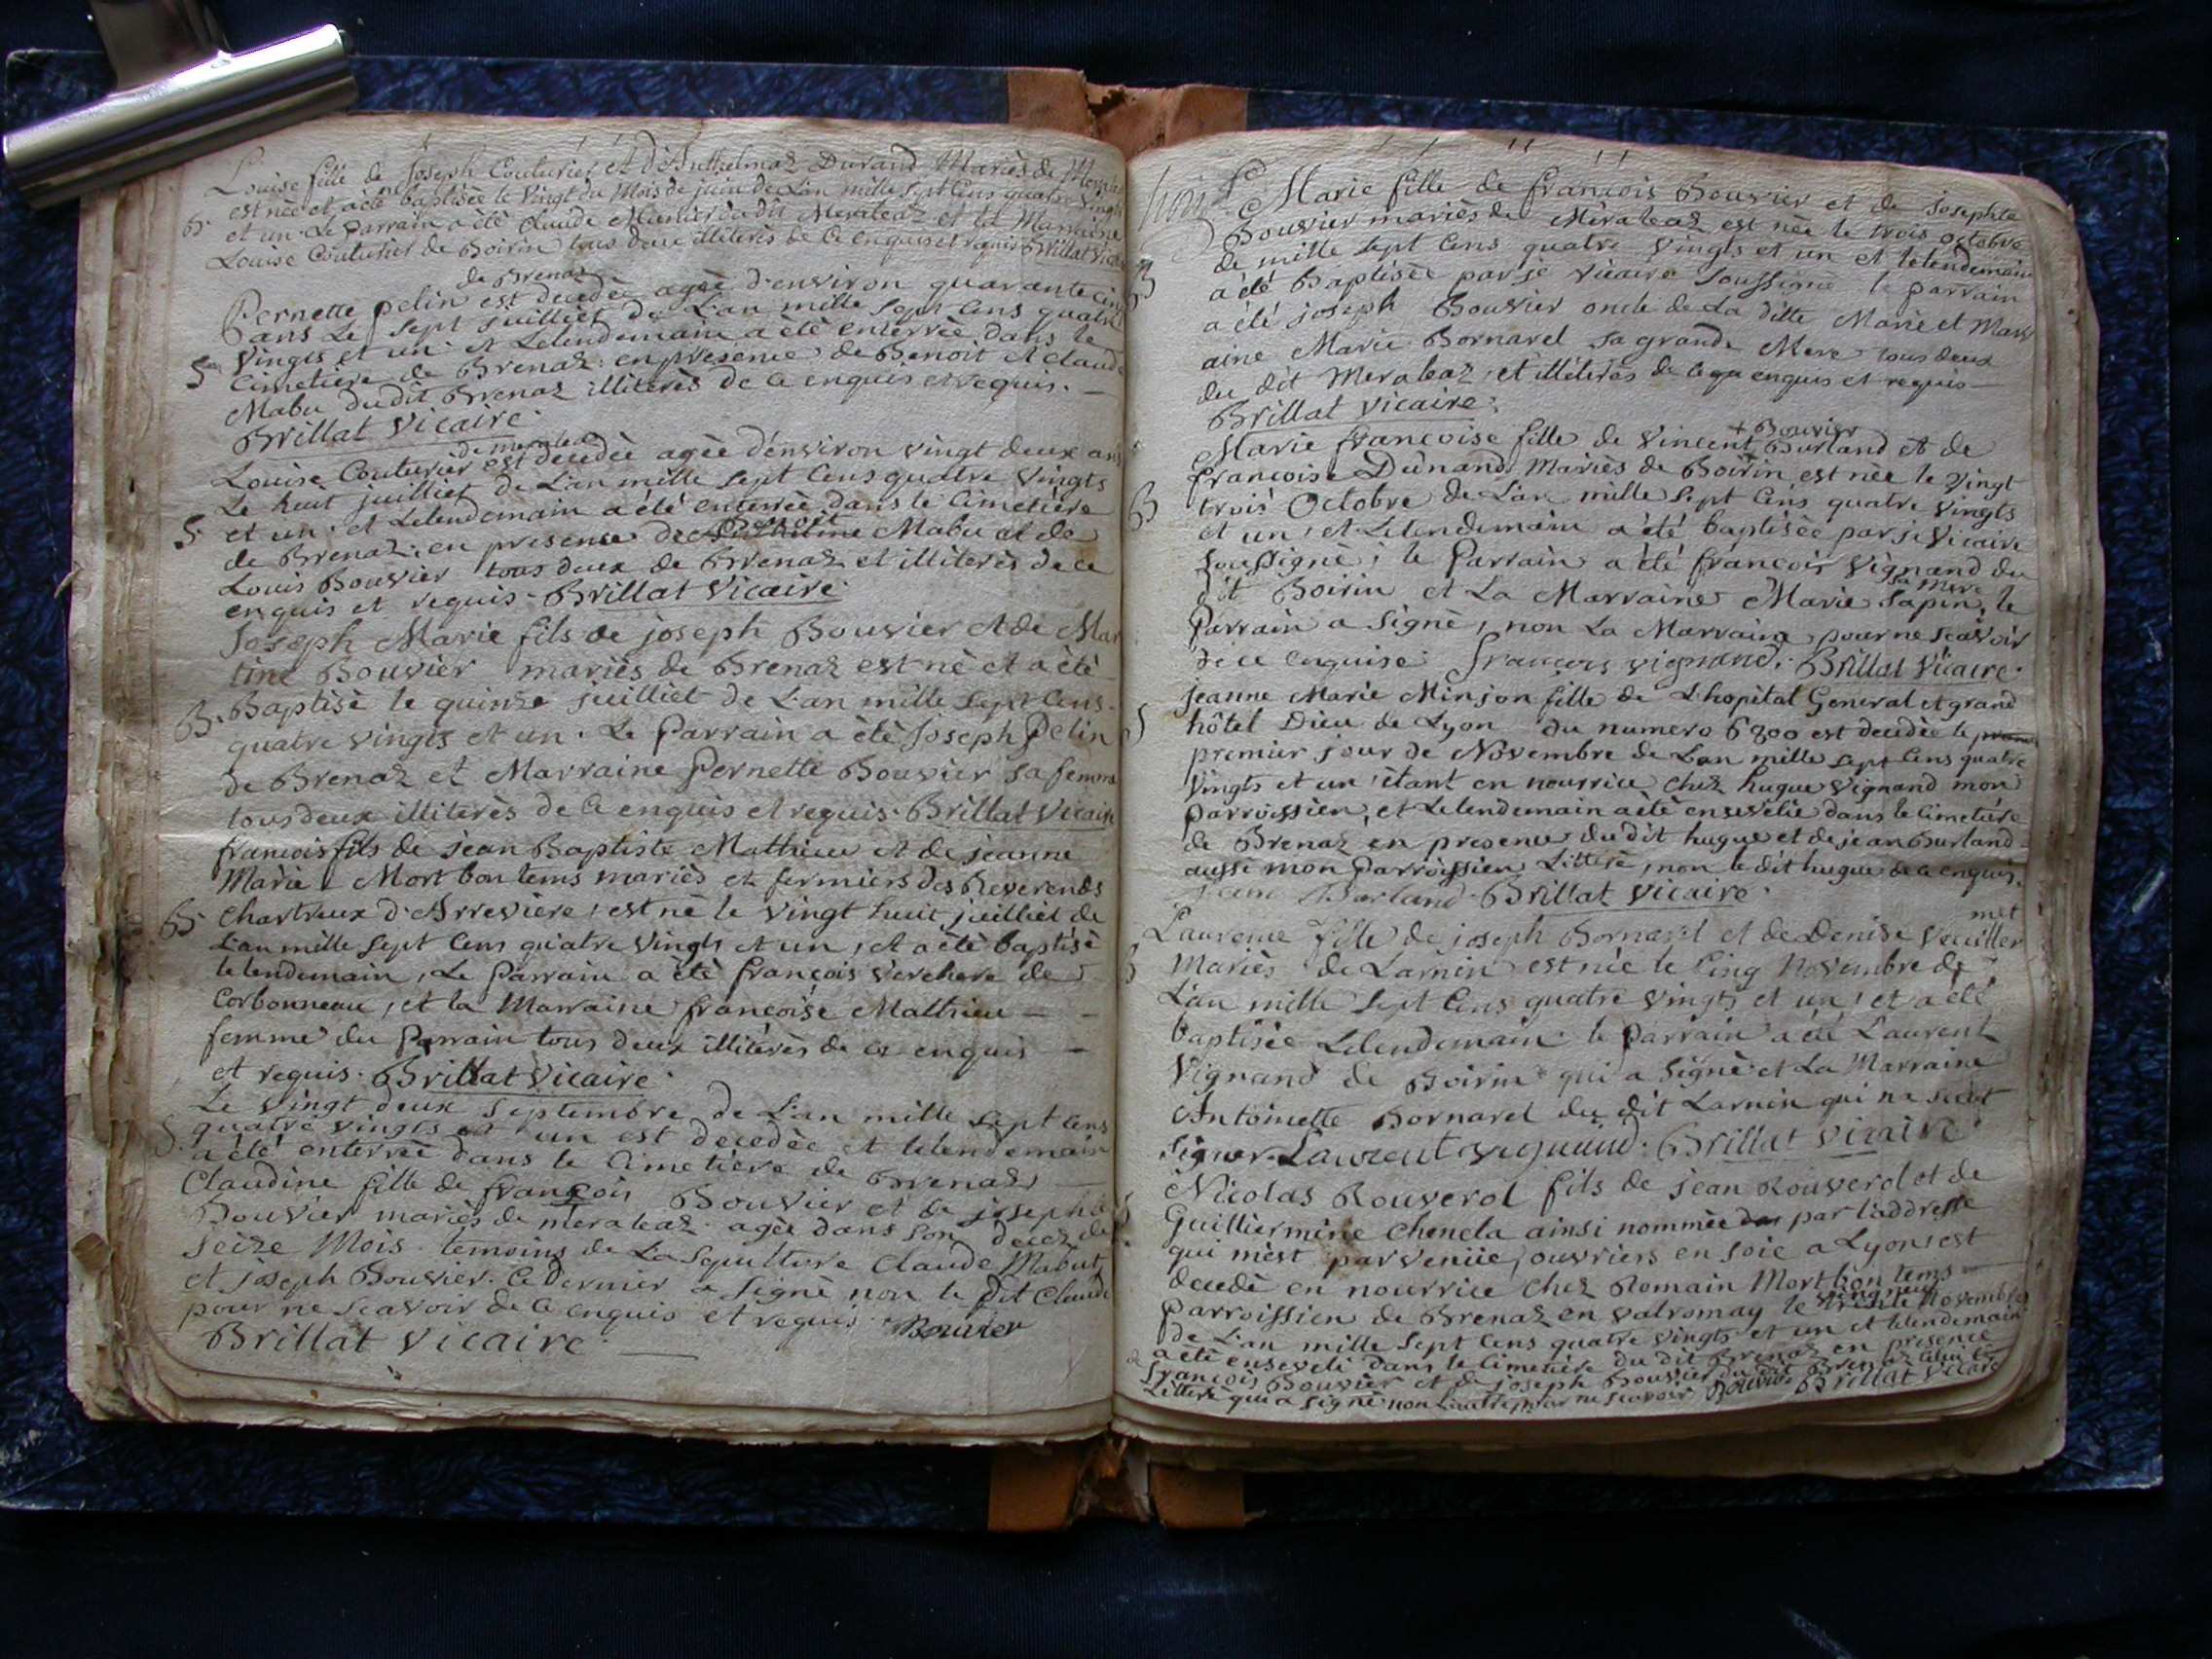 Louise fille de Joseph Couturier et d'Anthelmaz Durand Mariés de
est née et a été baptisée le vingt du Mois de juin de L'an mille sept Cens quatre vingts
B. et un. Le Parrain a été Claude Meunier du dit Meraleaz et la Marraine
Louise Couturier de Boirin tous deux illiterés de Ce enquis et requis Brillat Vicaire
de Brenaz
Pernette pelin est decedée agée d'environ quarante cinq
ans Le sept juilliet de L'an mille sept Cens quatre
vingts et un. et Lelendemain a été enterrée dans le
S. Cimetière de Brenaz: en presence de Benoit et Claude
Mabu du dit Brenaz illiterés de Ce enquis et requis. —
Brillat Vicaire.
de meraleaz
Louise Couturier est decedée agée d'environ vingt deux ans
Le huit juilliet de L'an mille sept Cens quatre vingts
S. et un. et Lelendemain a été enterrée dans le Cimetière
Benoit
de Brenaz: en presence de Mabu et de
Louis Bouvier tous deux de Brenaz et illiterés de ce
enquis et requis. Brillat Vicaire.
Joseph Marie fils de joseph Bouvier et de Mar
tine Bouvier mariés de Brenaz est né et a été
B. Baptisé le quinze juilliet de L'an mille sept Cens.
quatre vingts et un. Le Parrain a été Joseph Pelin
de Brenaz et Marraine Pernette Bouvier sa femme
tous deux illiterés de Ce enquis et requis. Brillat Vicaire
francois fils de jean Baptiste Mathieu et de jeanne
Marie Mort bon tems mariés et fermiers des Reverends
B. Chartreux d'Arreviere, est né le vingt huit juilliet de
L'an mille sept Cens quatre vingts et un, et a été baptisé
Lelendemain, Le Parrain a été françois Verchere de
Corbonneau, et la Marraine françoise Mathieu — —
femme du Parrain tous deux illiterés de ce enquis —
et requis. Brillat Vicaire.
Le vingt deux Septembre de L'an mille sept Cens
quatre vingts et un est decedée et lelendemain
S. a été enterrée dans le Cimetière de Brenaz —
Claudine fille de françois Bouvier et de josephte
Bouvier mariés de meraleaz. agée dans son decez de
Seize Mois. temoins de La Sepulture Claude Mabut,
et joseph Bouvier. Ce Dernier a Signé non le Dit Claude
pour ne scavoir de Ce enquis et requis. Bouvier
Brillat Vicaire. —
Marie fille de françois Bouvier et de josephte
Bouvier mariés de Méraleaz est née le trois octobre
de mille sept Cens quatre vingts et un et lelendemain
B a été Baptisée par je Vicaire Soussigné le parrain
a été joseph Bouvier oncle de La ditte Marie et Marr
aine Marie Bornarel sa grande Mere tous deux
du dit Meraleaz, et illiterés de enquis et requis —
Brillat Vicaire.
+ Bouvier
Marie françoise fille de Vincent Burland et de
françoise Dunand Mariés de Boirin est née le vingt
B trois Octobre de L'an mille sept Cens quatre vingts
et un, et Lelendemain a été baptisée par je Vicaire
Soussigné; le Parrain a été françois Vignand du
sa mere
dit Boirin et La Marraine Marie Sapin, le
Parrain a Signé, non La Marraine pour ne scavoir
de ce enquise. francois vignand. Brillat Vicaire.
jeanne Marie Minjon fille de L'hopital General et grand
S hôtel Dieu de Lyon du numero 6800 est decedée le
premier jour de Novembre de L'an mille sept Cens quatre
Vingts et un étant en nourrice chez hugue Vignand mon
Parroissien, et Lelendemain a été ensevelie dans le Cimetière
de Brenaz en presence du dit hugue et de jean Burland
aussi mon Parroissien Litteré, non le dit hugue de ce enquis.
jean Burland. Brillat Vicaire.
met
Laurence fille de joseph Bornarel et de Denise Vuiller
B Mariés de Larnin est née le Cinq Novembre de
L'an mille sept Cens quatre vingts et un, et a été
baptisée Lelendemain. le Parrain a été Laurent
Vignand de Boirin qui a Signé et La Marraine
Antoinette Bornarel du dit Larnin qui ne scait
Signer. Laurent vignand. Brillat Vicaire.
Nicolas Rouverol fils de jean Rouverol et de
S Guilliermine Cheneta ainsi nommée par l'addresse
qui m'est parvenüe, ouvriers en soie a Lyon, est
decedé en nourrice chez Romain Mort bon tems —
vingt neuf
Parroissien de Brenaz en valromay le novembre
de L'an mille sept Cens quatre vingts et un et lelendemain
a été enseveli dans le Cimetière du dit Brenaz en presence
de françois Bouvier et de joseph Bouvier du dit Brenaz celui cy
Litteré qui a signé non L'autre pour ne scavoir Bouvier Brillat Vicaire